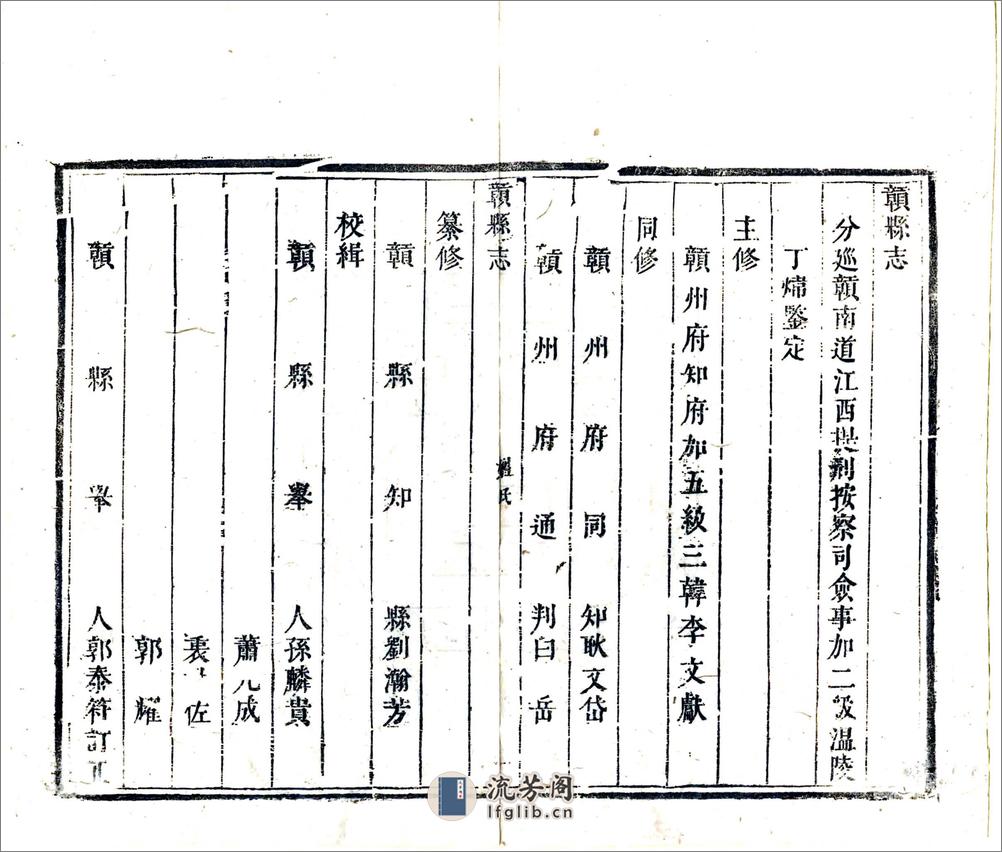 贛縣志
分廵贛南道江西提刑按察司僉事加二級温陵
丁煒鑒定
主修
贛州府知府加五級三韓李文獻
同修
贛州府同知耿文岱
贛州府通判白岳
贛縣志
纂修
贛縣知縣劉瀚芳
校緝
贛縣舉人孫麟貴
蕭成
裘佐
郭耀
贛縣舉人郭泰符訂正
流芳阁
lfglib.cn